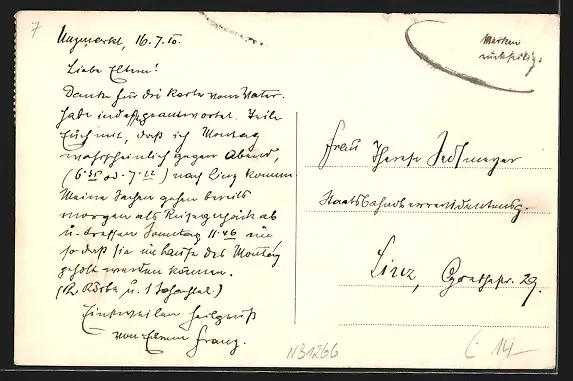 7
Neumarkt, 16.7.10.
Liebe Eltern!
Danke für die Karte vom Vater.
habe indess geantwortet. Teile
Euch mit, daß ich Montag
wahrscheinlich gegen Abend,
(6·35 od. 7·12) nach Linz komme.
Meine Sachen gehen bereits
morgen als Reisegepäck ab
u. treffen Sonntag 11·46 ein
so daß sie im Laufe des Montag
geholt werden können.
(2 Körbe u. 1 Schachtel.)
Einstweilen Heilgruß
von Eurem Franz.
Marken
rückseitig.
Frau Therese
Linz, 29.
NB1266
14